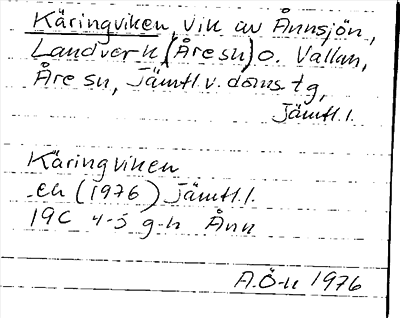 Käringviken, vik av Ånnsjön,
Landverk (Åre sn) o. Vallan,
Åre sn, Jämtl. v. doms. tg,
Jämtl. l.
Käringviken
ek (1976) Jämtl. l.
19C 4-5 g-h Ånn
A.Ö-n 1976